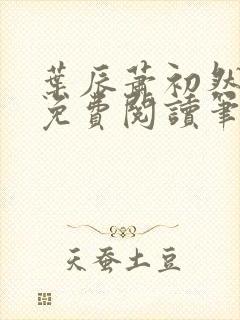 葉辰蕭初然
免費閱讀筆
天蚕土豆